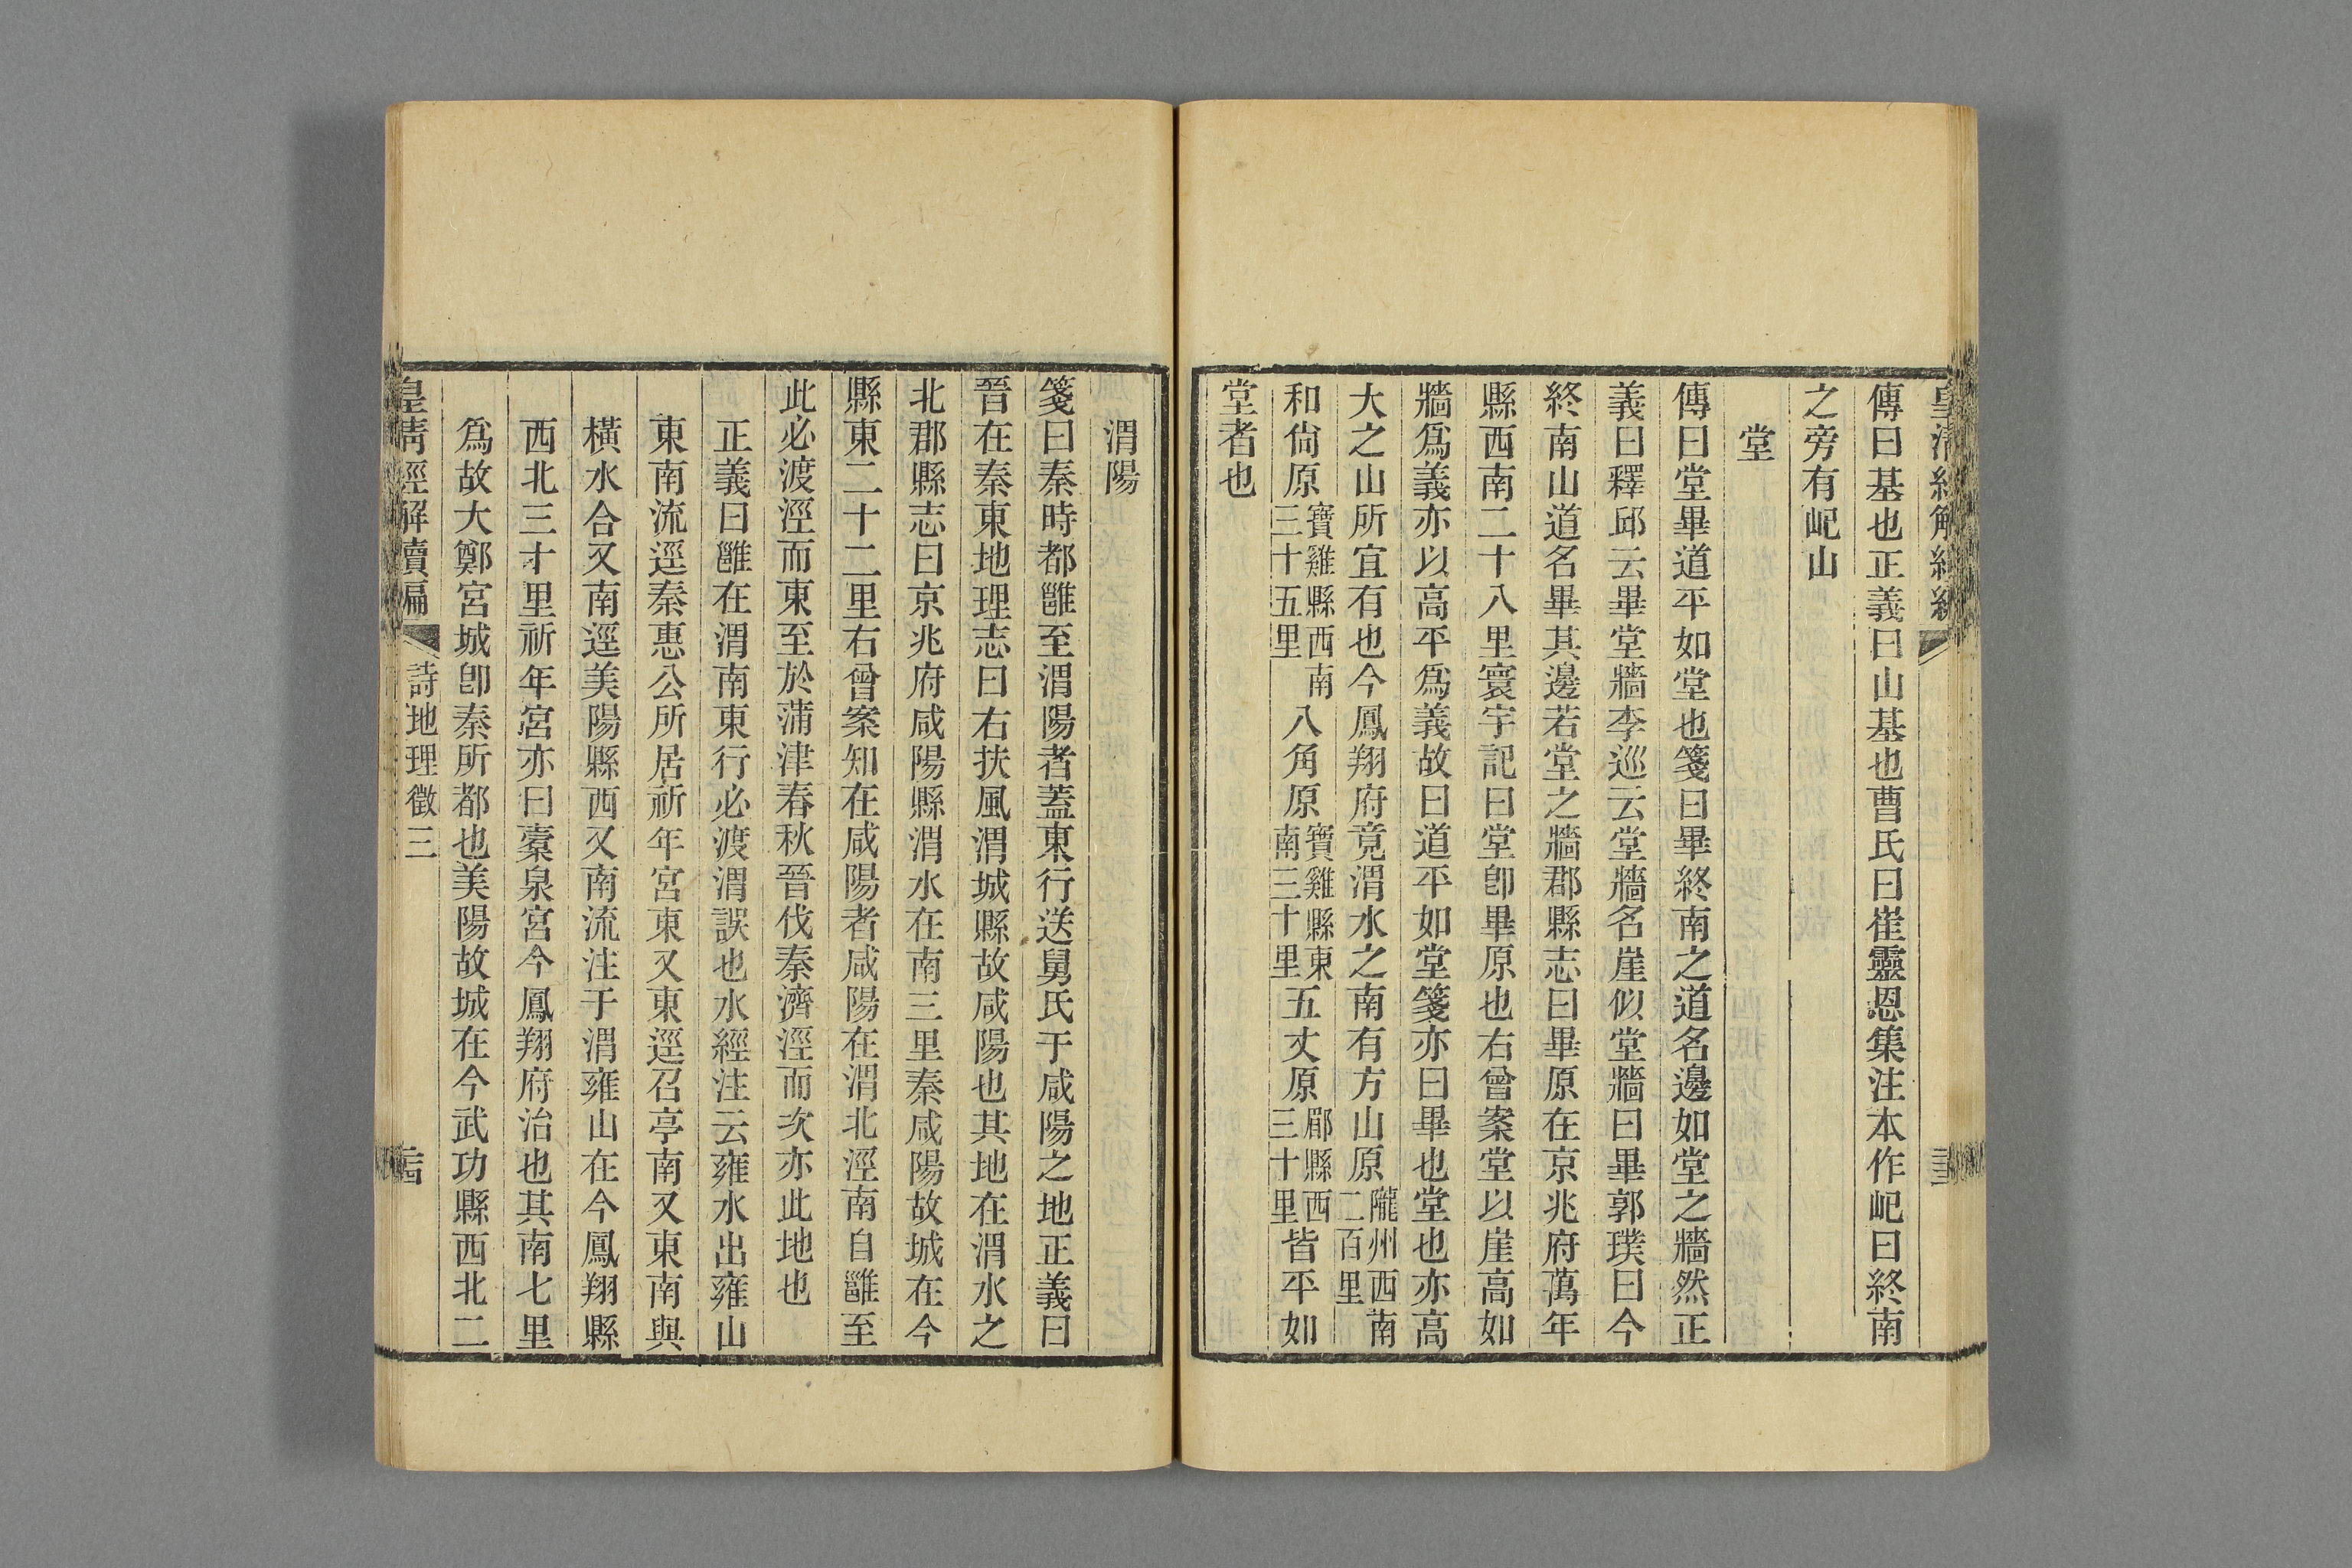 傳曰基也正義曰山基也曹氏曰崔靈恩集注本作屺曰終南
之旁有屺山
堂
傳曰堂畢道平如堂也箋曰畢終南之道名邊如堂之牆然正
義曰釋邱云畢堂牆李巡云堂牆名崖似堂牆曰畢郭璞曰今
終南山道名畢其邊若堂之牆郡縣志曰畢原在京兆府萬年
縣西南二十八里寰宇記曰堂卽畢原也右曾案堂以崖高如
牆爲義亦以高平爲義故曰道平如堂箋亦曰畢也堂也亦高
大之山所宜有也今鳳翔府竟渭水之南有方山原隴州西南二百里
和尙原寶雞縣西南三十五里八角原寶雞縣東南三十里五丈原郿縣西三十里皆平如
堂者也
渭陽
箋曰秦時都雝至渭陽者蓋東行送舅氏于咸陽之地正義曰
晉在秦東地理志曰右扶風渭城縣故咸陽也其地在渭水之
北郡縣志曰京兆府咸陽縣渭水在南三里秦咸陽故城在今
縣東二十二里右曾案知在咸陽者咸陽在渭北涇南自雝至
此必渡涇而東至於蒲津春秋晉伐秦濟涇而次亦此地也
正義曰雝在渭南東行必渡渭誤也水經注云雍水出雍山
東南流逕秦惠公所居祈年宮東又東逕召亭南又東南與
橫水合又南逕美陽縣西又南流注于渭雍山在今鳳翔縣
西北三十里祈年宮亦曰槖泉宮今鳳翔府治也其南七里
爲故大鄭宮城卽秦所都也美陽故城在今武功縣西北二
皇淸經解續編 詩地理徵三